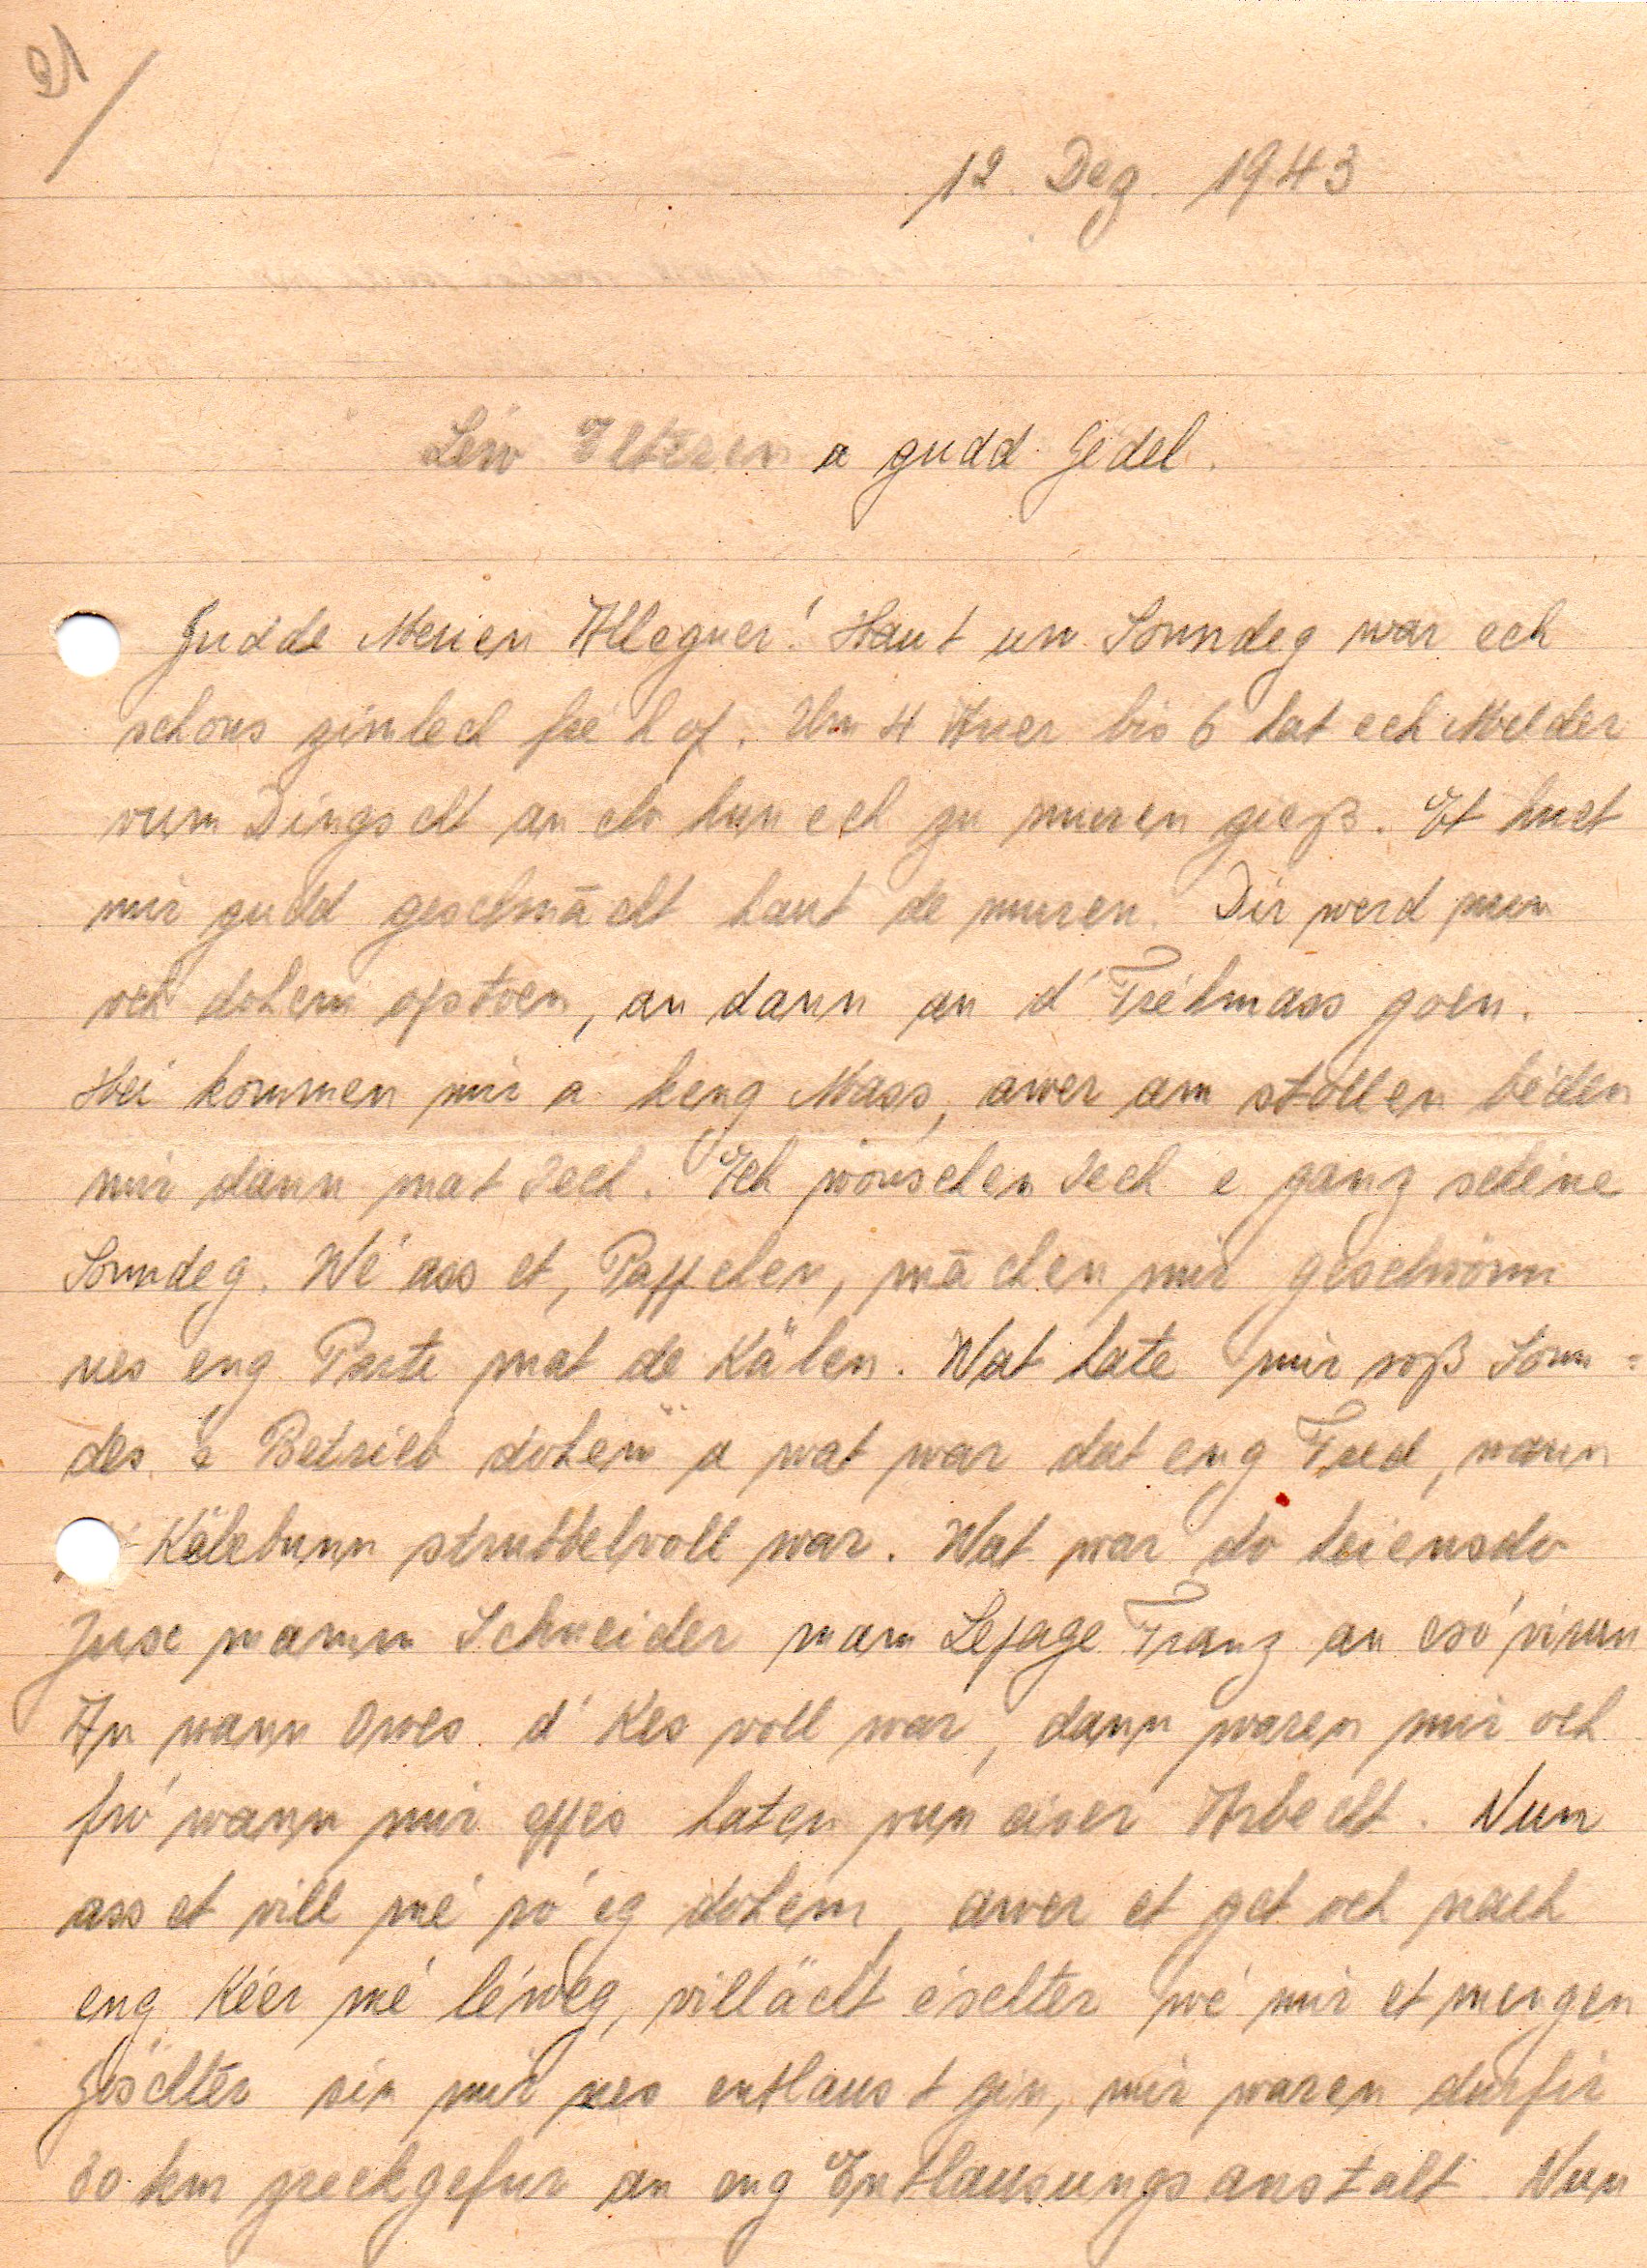 21
12. Dez. 1943
Léiw Elteren a gudd Gedel.
Gudde Meuen Alleguer! Haut um Sonndeg war ech
schons zimlech fré h of. Um 4 Auer bis 6 hat ech Melder
vum Dingscht an do hun ech zu muren giess. Et huet
mir gudd geschmācht haut de muren. Dir werd nun
och dohem opstoen, an dann an d' Fréhmass goen.
Hei kommen mir a keng Mass, awer am stollen béden
mir dann mat Iech. Ech wönschen Iech e ganz schéne
Sonndeg. Wé ass et, Pappchen, mā chen mir geschwönn
nes eng Parte mat de Kälen. Wat hate mir soß Sonn=
des e Betrieb dohem a wat war dat eng Fred, wann
d' Kälebunn strubbelvoll war. Wat war do heiensdo
Juse mamm Schneider mam Lepage Franz an esó virun
An wann Owes d' Kes voll war, dann waren mir och
fró wann mir eppes haten vun eiser Arbecht. Nun
ass et vill mé ró eg dohem, awer et get och nach
eng Kéer mé léweg, villäicht éischter wé mir et mengen
Gëschter sin mir nes entlaus t gin, mir waren durfir
30 km zreckgefur an eng Entlausungs anstalt. Nun